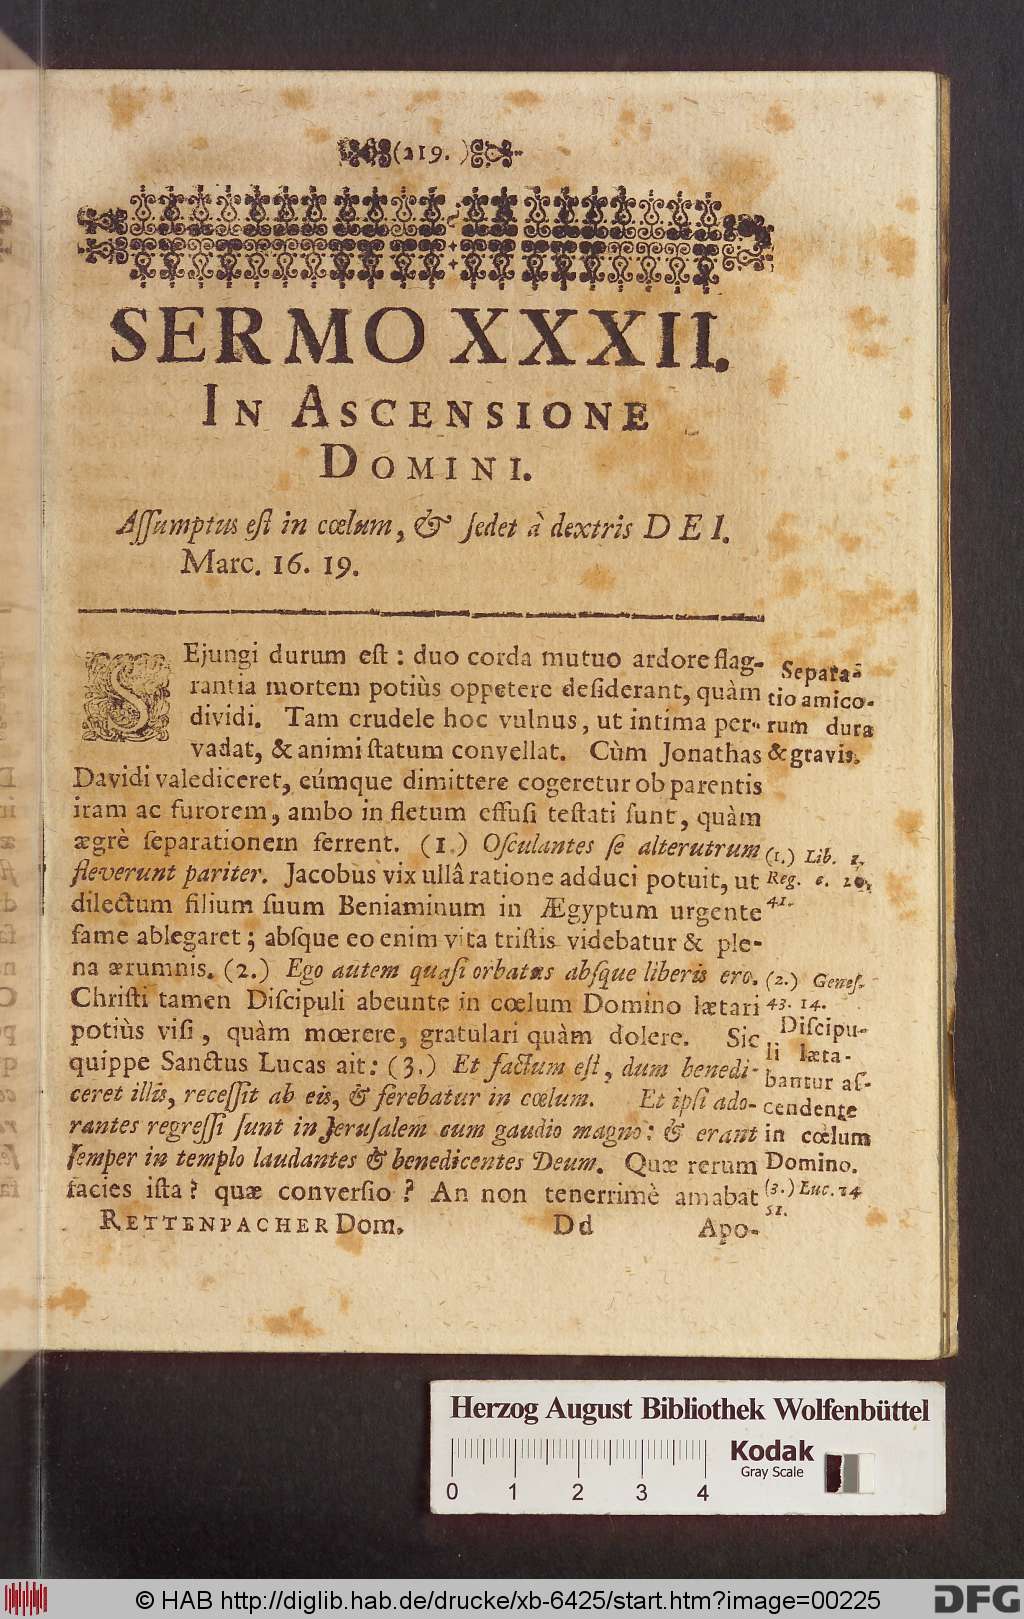 (219.)
SERMO XXXII.
IN ASCENSIONE
DOMINI.
Aſſumptus eſt in cœlum, & ſedet à dextris DEI.
Marc. 16. 19.
SEjungi durum eſt : duo corda mutuo ardore flag-
rantia mortem potiùs oppetere deſiderant, quàm
dividi. Tam crudele hoc vulnus, ut intima per-
vadat, & animi ſtatum convellat. Cùm Jonathas
Davidi valediceret, eúmque dimittere cogeretur ob parentis
iram ac furorem, ambo in fletum effuſi teſtati ſunt, quàm
ægrè ſeparationem ferrent. (1.) Oſculantes ſe alterutrum
fleverunt pariter. Jacobus vix ullâ ratione adduci potuit, ut
dilectum filium ſuum Beniaminum in Ægyptum urgente
fame ablegaret ; abſque eo enim vita triſtis videbatur & ple-
na ærumnis. (2.) Ego autem quaſi orbatus abſque liberis ero.
Chriſti tamen Diſcipuli abeunte in cœlum Domino lætari
potiùs viſi, quàm mœrere, gratulari quàm dolere. Sic
quippe Sanctus Lucas ait : (3.) Et factum eſt, dum benedi-
ceret illis, receſſit ab eis, & ferebatur in cœlum. Et ipſi ado-
rantes regreſſi ſunt in Jeruſalem cum gaudio magno : & erant
ſemper in templo laudantes & benedicentes Deum. Quæ rerum
facies iſta ? quæ converſio ? An non tenerrimè amabat
RETTENPACHER Dom. Dd Apo-
Separa-
tio amico-
rum dura
& gravis.
(1.) Lib. 1.
Reg. c. 20.
41.
(2.) Geneſ.
43. 14.
Diſcipu-
li læta-
bantur aſ-
cendente
in cœlum
Domino.
(3.) Luc. 24
51.
Herzog August Bibliothek Wolfenbüttel
Kodak
Gray Scale
0 1 2 3 4
© HAB http://diglib.hab.de/drucke/xb-6425/start.htm?image=00225
DFG